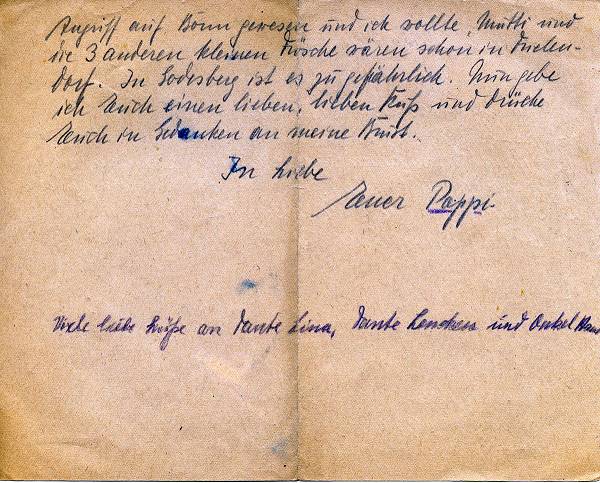 Angriff auf Bonn gewesen und ich wollte, Mutti und
die 3 anderen kleinen Frösche wären schon in
dorf. In Godesberg ist es zu gefährlich. Nun gebe
ich Euch einen lieben, lieben Kuß und drücke
Euch in Gedanken an meine Brust.
In Liebe
Euer Pappi.
Viele liebe Grüße an Tante Lina, Tante Lenchen und Onkel